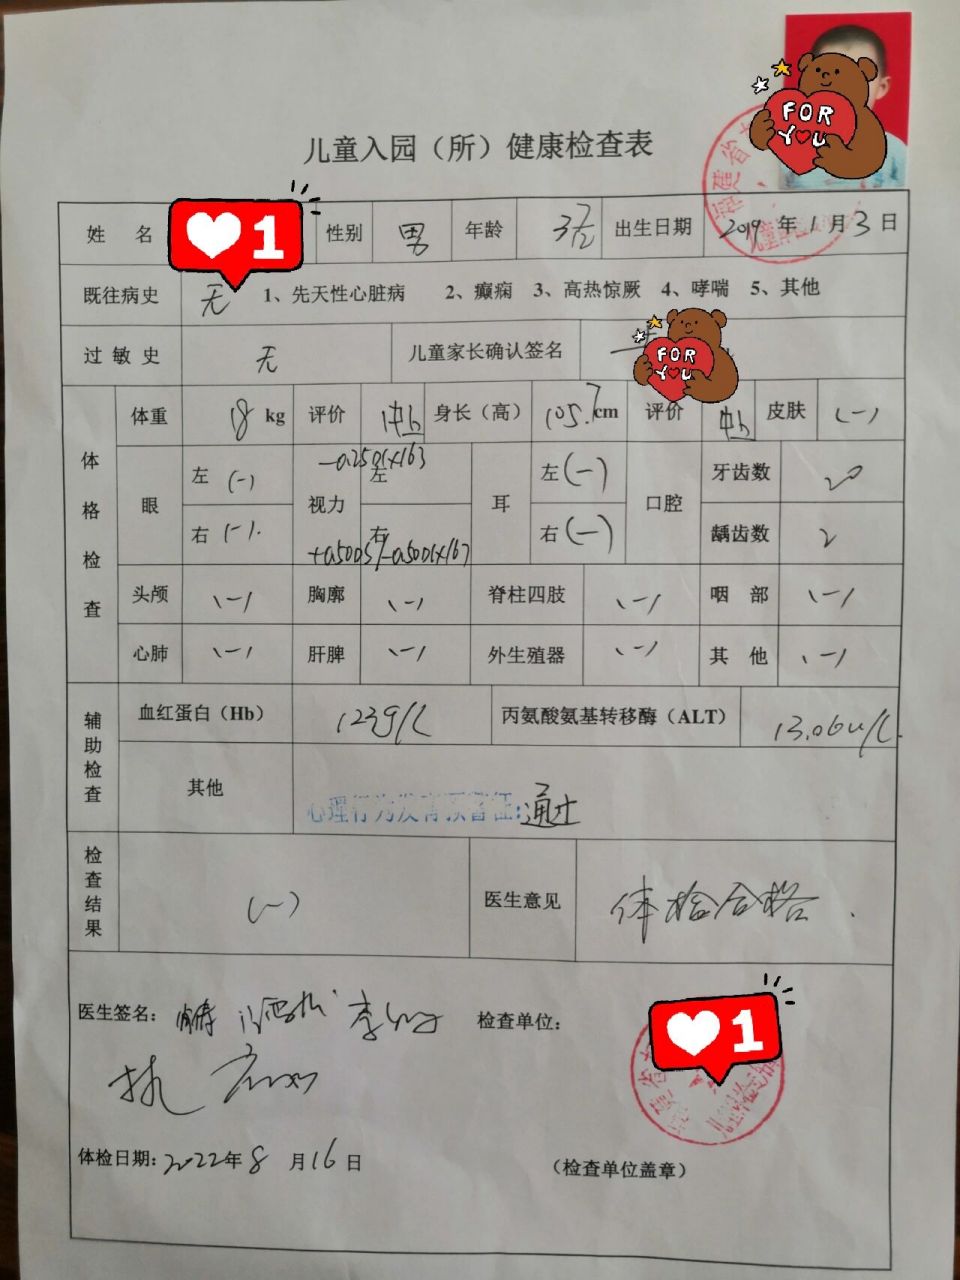 FOR
YOU
儿童入园（所）健康检查表
姓 名 1 性别 男 年龄 3岁 出生日期 2019 年 1 月 3 日
既往病史 无 1、先天性心脏病 2、癫痫 3、高热惊厥 4、哮喘 5、其他
过 敏 史 无 儿童家长确认签名
FOR
YOU
体格检查
体重 18 kg 评价 中上 身长（高） 105.7 cm 评价 中上 皮肤 (-)
眼 左 (-) 视力 左 -0.25DC×163 耳 左 (-) 口腔 牙齿数 20
右 (-) 右 +0.50DS/-0.50DC×167 右 (-) 龋齿数 2
头颅 (-) 胸廓 (-) 脊柱四肢 (-) 咽 部 (-)
心肺 (-) 肝脾 (-) 外生殖器 (-) 其 他 (-)
辅助检查
血红蛋白（Hb） 123g/L 丙氨酸氨基转移酶（ALT） 13.06u/L
其他 心理行为发育预警征:通过
检查结果 (-) 医生意见 体检合格.
医生签名: 检查单位:
1
体检日期: 2022年 8 月 16 日 （检查单位盖章）